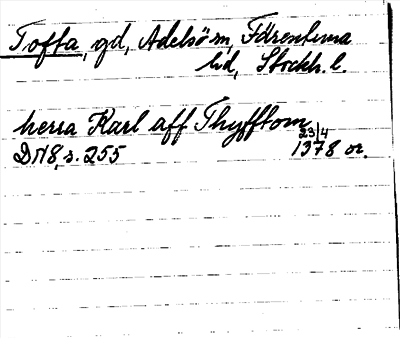 Tofta, gd, Adelsö sn, Färentuna
hd, Stockh. l.
herra Karl aff Thyfftom
23/4
DN8, s. 255 1378 or.